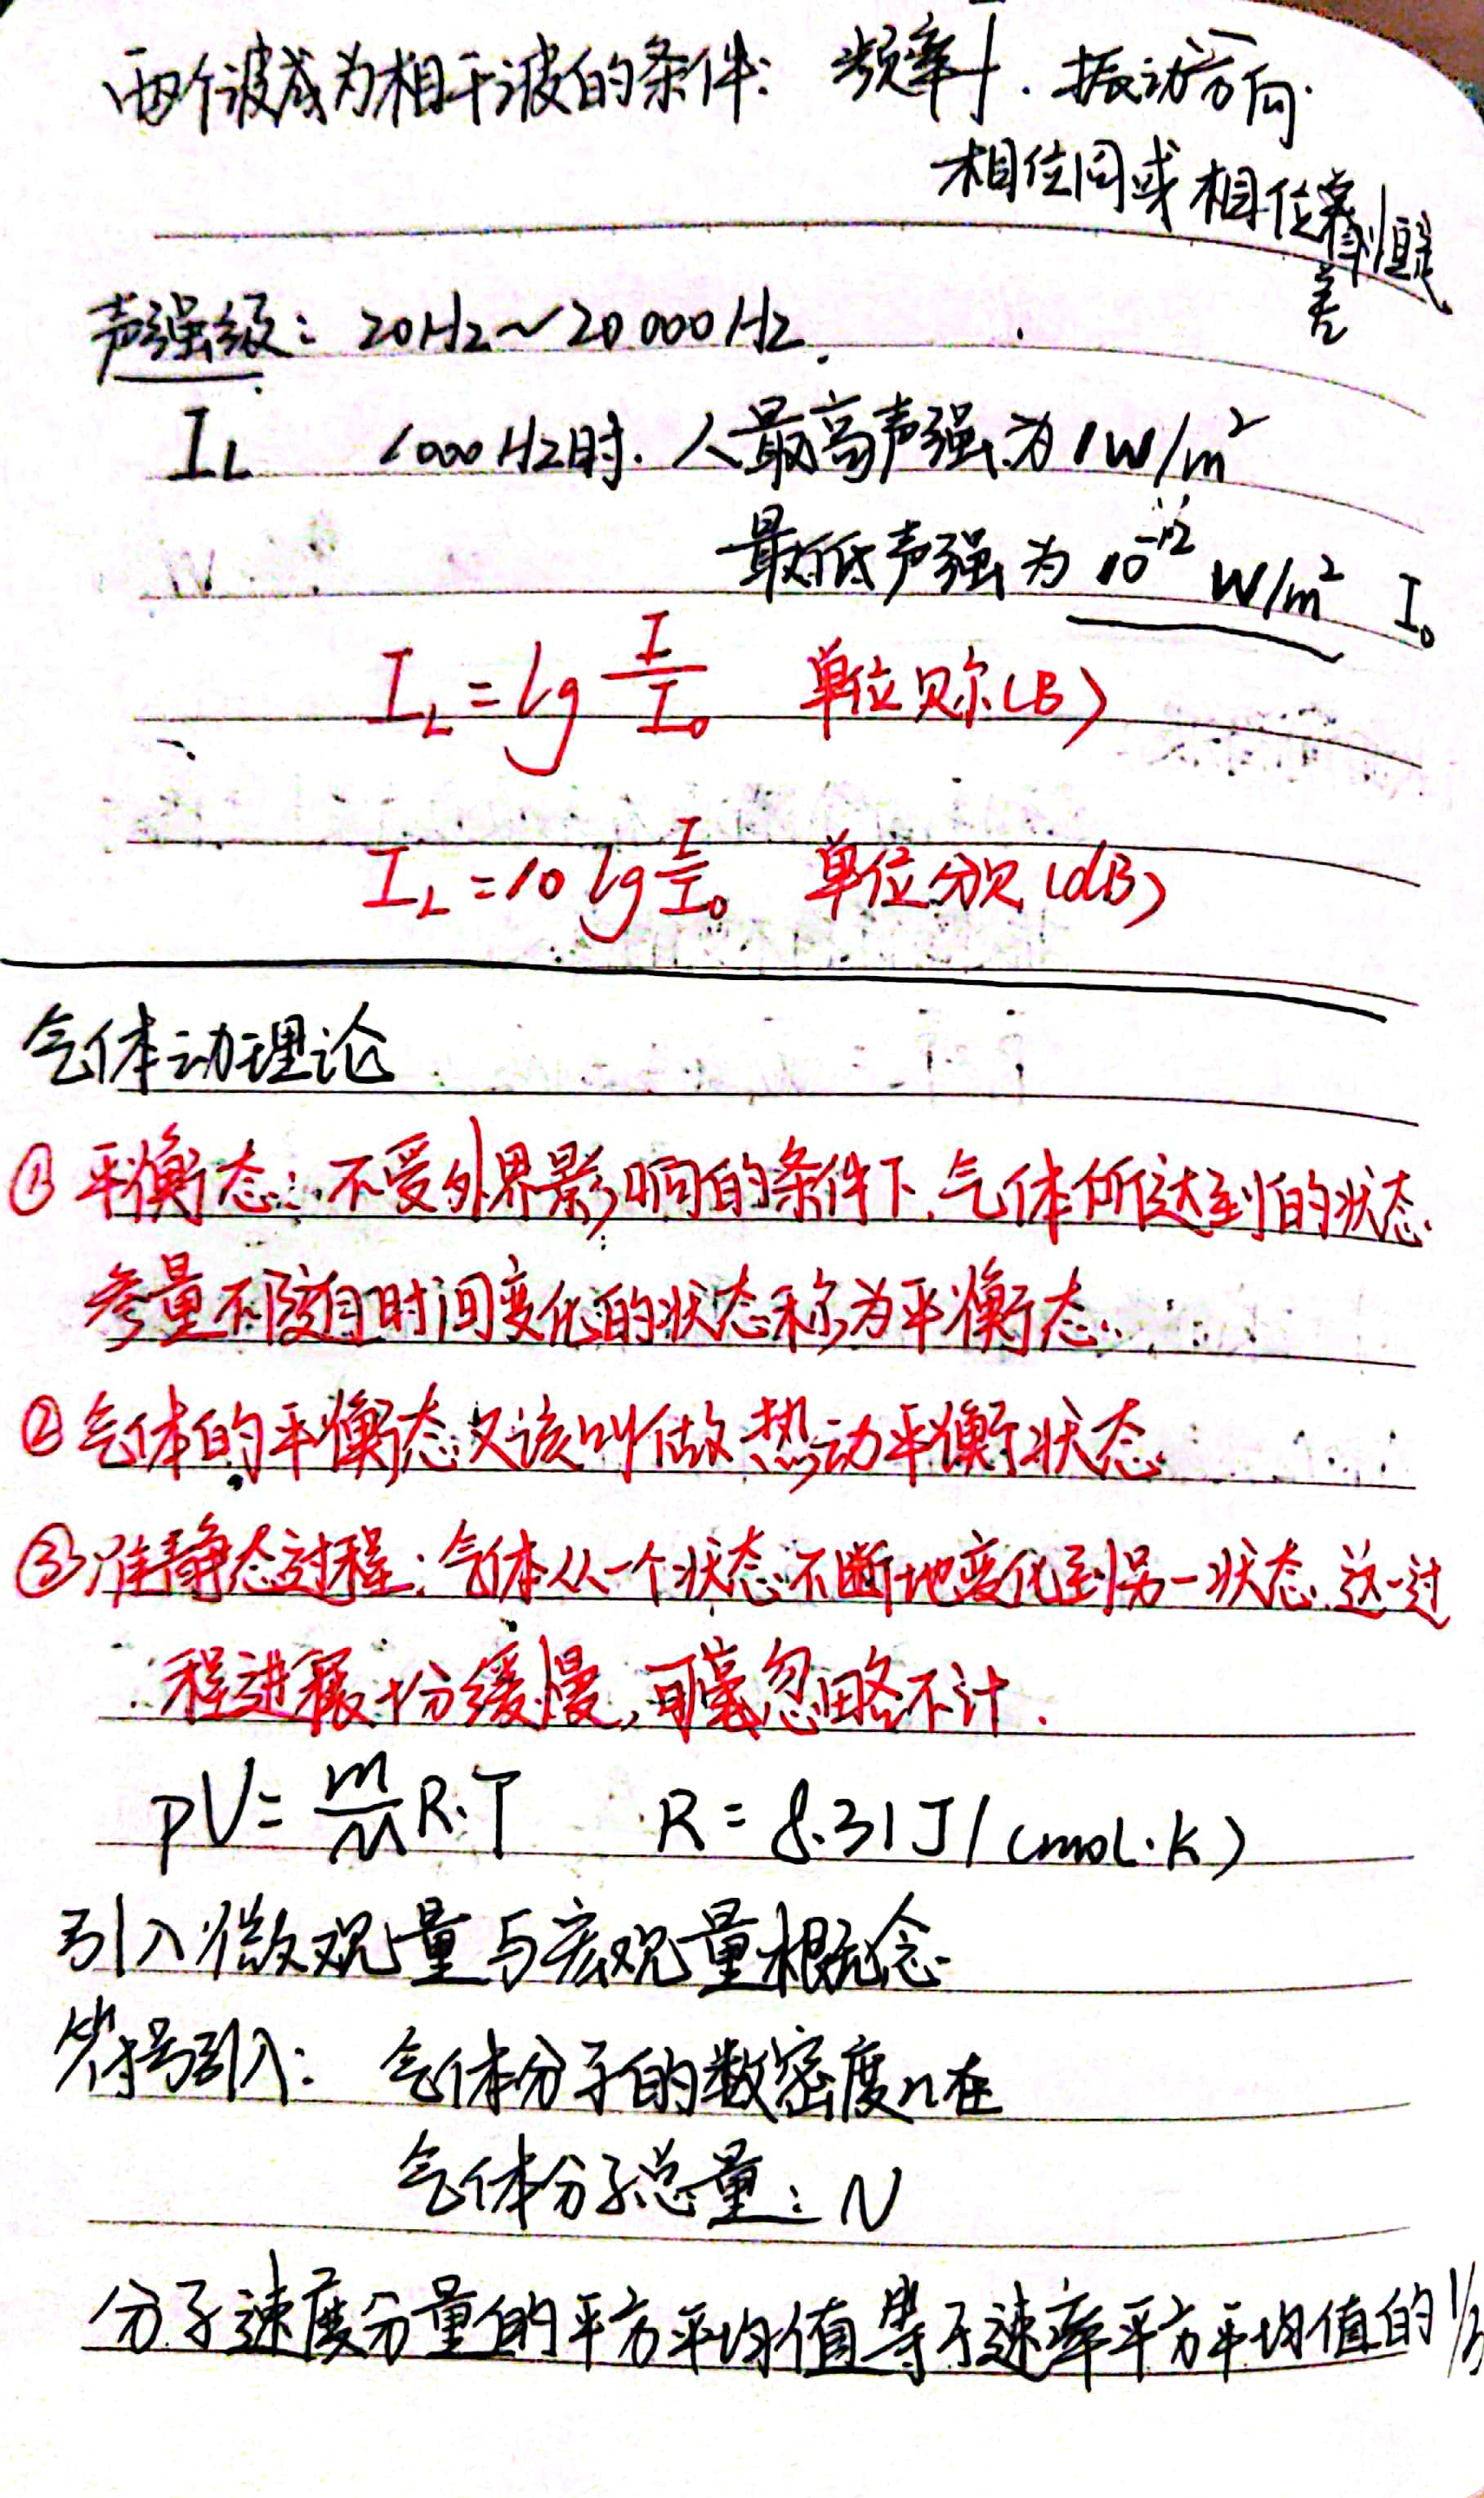 两个波成为相干波的条件: 频率 . 振动方向.
相位同或相位差恒定
声强级: 20Hz~20000Hz.
I_L 1000Hz时. 人最高声强为1W/m²
最低声强为 10⁻¹² W/m² I₀
I_L = lg I/I₀ 单位贝尔(B)
I_L = 10 lg I/I₀ 单位分贝(dB)
气体动理论
① 平衡态: 不受外界影响的条件下, 气体所达到的状态
参量不随时间变化的状态称为平衡态.
② 气体的平衡态又该叫做热动平衡状态.
③ 准静态过程: 气体从一个状态不断地变化到另一状态, 这一过
程进展十分缓慢, 可 忽略不计.
pV = m/M R·T R = 8.31J/(mol·K)
引入微观量与宏观量概念
符号引入: 气体分子的数密度n在
气体分子总量: N
分子速度分量的平方平均值等于速率平方平均值的1/3